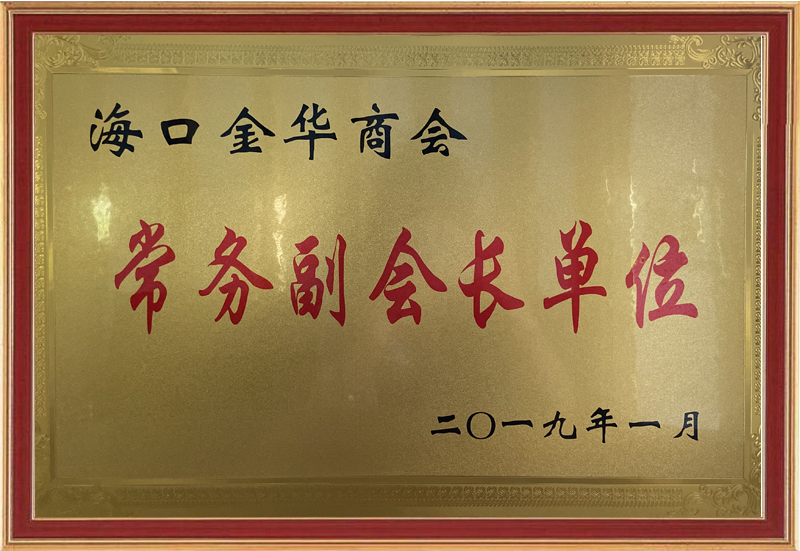 海口金华商会
常务副会长单位
二〇一九年一月